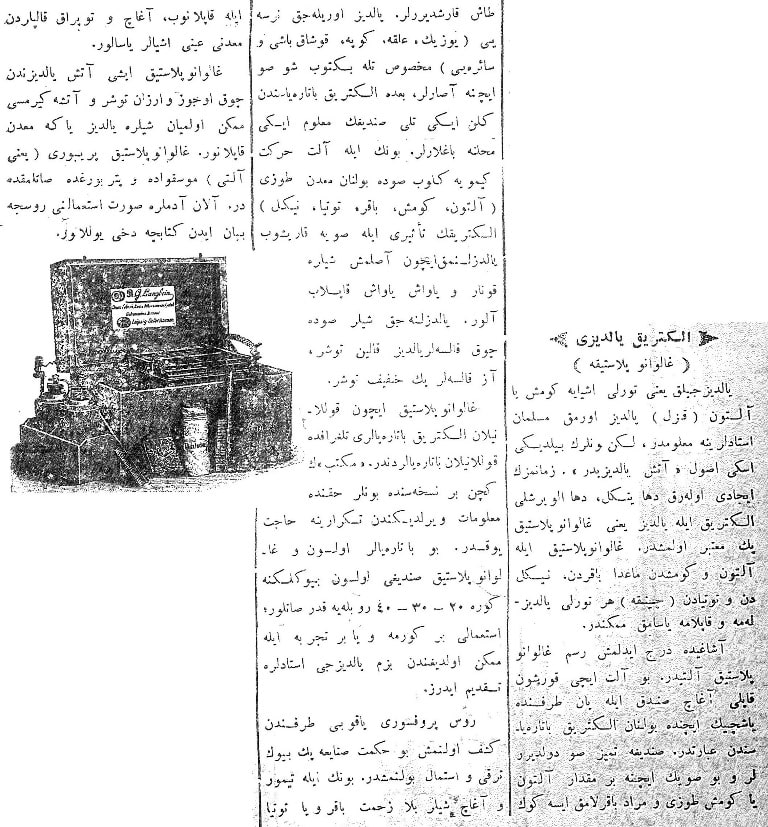 الكتريق يالديزى
( غالوانو پلاستيقه )
يالديزجيلق يعنى تورلى اشيايه كومش يا
آلتون ( قزل ) يالديز اورمق مسلمان
استادلرينه معلومدر، لكن ونلرك بيلديكى
اسكى اصول «آتش يالديزيدر» . زمانمزك
ايجادى اوله‌رق دها يتكل، دها الويرشلى
الكتريق ايله يالديز يعنى غالوانوپلاستيق
پك معتبر اولمشدر. غالوانوپلاستيق ايله
آلتون و كومشدن ماعدا باقردن، نيكل
دن و توتيادن ( جينقه ) هر تورلى يالديز-
له‌مه و قاپلامه ياسامق ممكندر.
آشاغيده درج ايدلمش رسم غالوانو
پلاستيق آلتيدر. بو آلت ايچى قورپشون
قاپلى آغاچ صندق ايله يان طرفنده
ياشچيك ايچنده بولنان الكتريق باتاره‌يا-
سندن عبارتدر. صنديقه تميز صو دولديرو
لر و بو صويك ايچنه بر مقدار آلتون
يا كومش طوزى و مراد باقرلامق ايسه كوك
طاش قارشديررلر. يالديز اوريله‌جق نرسه
يى ( يوزيك، علقه، كوپه، قوشاق باشى و
سائره‌يى ) مخصوص تله بكتوب شو صو
ايچنه آصارلر، بعده الكتريق باتاره‌ياسندن
كلن ايكى تلى صنديقك معلوم ايكى
محلنه باغلارلر. بونك ايله آلت حركت
كيمويه كلوب صوده بولنان معدن طوزى
( آلتون، كومش، باقر، توتيا، نيكل )
الكتريقك تأثيرى ايله صويه قاريشوب
يالدزلنمق ايچون آصلمش شيلره
قونار و ياواش ياواش قاپلاب
آلور. يالدزلنه‌جق شيلر صوده
چوق قالسه‌لر يالديز قالين توشر،
آز قالسه‌لر پك خفيف توشر.
غالوانوپلاستيق ايچون قوللا-
نيلان الكتريق باتاره‌يالرى تلغرافده
قوللانيلان باتاره‌يالردندر. «مكتب»ك
كچن بر نسخه‌سنده بونلر حقنده
معلومات ويرلديكندن تكرارينه حاجت
يوقدر. بو باتاره‌يالر اولسون و غا-
لوانوپلاستيق صنديقى اولسون بيوكلكنه
كوره ٢٠ — ٣٠ — ٤٠ روبله‌يه قدر صاتلور؛
استعمالى بر كورمه و يا بر تجربه ايله
ممكن اولديغندن بزم يالديزجى استادلره
تقديم ايدرز.
روس پروفسورى ياقوبى طرفندن
كشف اولنمش بو حكمت صنايعه پك بيوك
ترقى و استمال بولنمشدر. بونك ايله تيمور
و آغاچ شيلر بلا زحمت باقر و يا توتيا
ايله قاپلانوب، آغاچ و توپراق قالپلردن
معدنى عينى اشيالر ياسالور.
غالوانوپلاستيق ايشى آتش يالديزندن
چوق اوجوز و ارزان توشر و آتشه كيرمسى
ممكن اولميان شيلره يالديز ياكه معدن
قاپلانور. غالوانوپلاستيق پريبورى ( يعنى
آلتى ) موسقواده و پتربورغده صاتلمقده
در. آلان آدملره صورت استعمالنى روسچه
بيان ايدن كتابچه دخى يوللاولر.